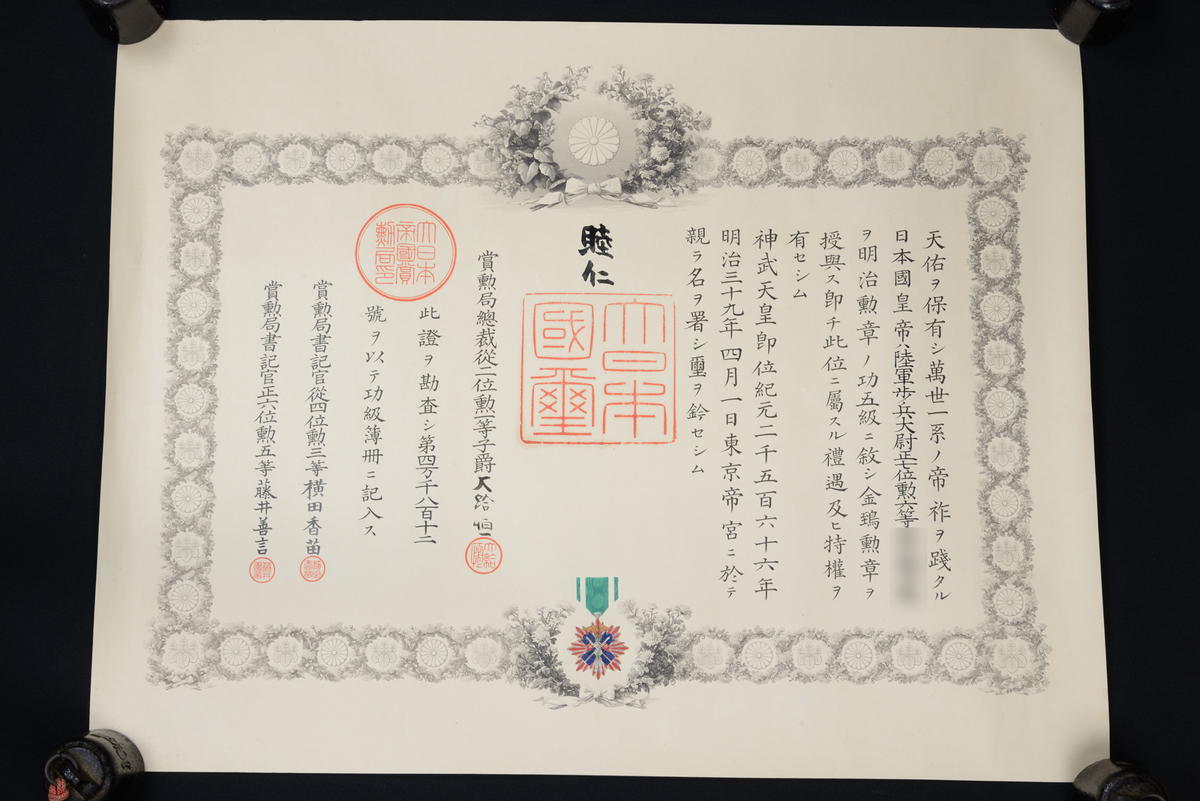 天佑ヲ保有シ萬世一系ノ帝祚ヲ踐タル
日本國皇帝ハ陸軍歩兵大尉正七位勲六等
ヲ明治勲章ノ功五級ニ敘シ金鵄勲章ヲ
授與ス即チ此位ニ屬スル禮遇及ヒ特權ヲ
有セシム
神武天皇即位紀元二千五百六十六年
明治三十九年四月一日東京帝宮ニ於テ
親ラ名ヲ署シ璽ヲ鈐セシム
睦仁
大日本
國璽
賞勲局總裁從二位勲一等子爵大給恒
此證ヲ勘査シ第四万千八百十二
號ヲ以テ功級簿冊ニ記入ス
大日本
帝國賞
勲局印
賞勲局書記官從四位勲三等横田香苗
賞勲局書記官正六位勲五等藤井善言